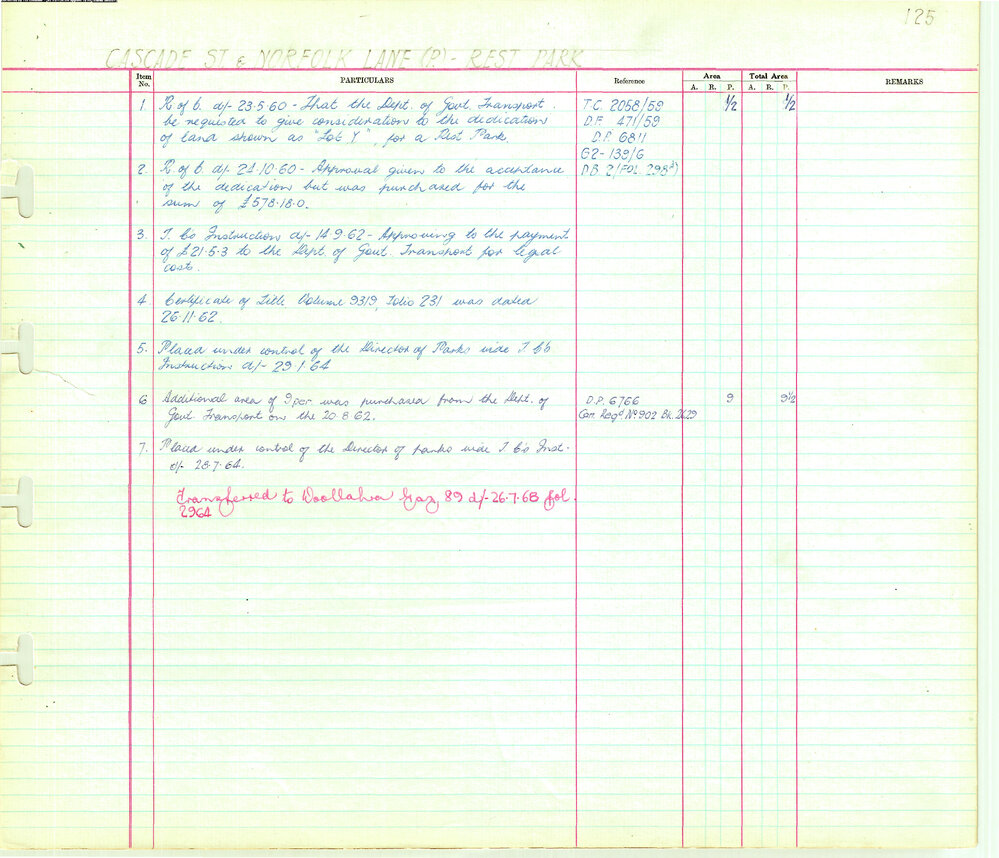 125
CASCADE ST & NORFOLK LANE (P) - REST PARK
Item No. PARTICULARS Reference Area Total Area REMARKS
A. R. P. A. R. P.
1 R of C. d/- 23.5.60 - That the Dept. of Govt. Transport T.C 2058/59 1/2 1/2
be requested to give consideration to the dedication D.F. 471/59
of land shown as "Lot Y", for a Rest Park. D.P. 6811
G2-139/6
2. R of C. d/- 24.10.60 - Approval given to the acceptance D.B. 2/FOL 298
of the dedication but was purchased for the
sum of £578.18.0.
3. T. C's Instruction d/- 14.9.62 - Approving to the payment
of £21.5.3 to the Dept. of Govt. Transport for legal
costs.
4. Certificate of Title Volume 9319, Folio 231 was dated
26.11.62.
5. Placed under control of the Director of Parks vide T. C's
Instruction d/- 29.1.64
6 Additional area of 9 per. was purchased from the Dept. of D.P. 6766 9 9 1/2
Govt. Transport on the 20.8.62. Con. Regd No. 902 Bk. 2629
7. Placed under control of the Director of parks vide T. C's Inst.
d/- 28.7.64.
Transferred to Woollahra Gaz. 89 d/- 26.7.68 fol.
2964